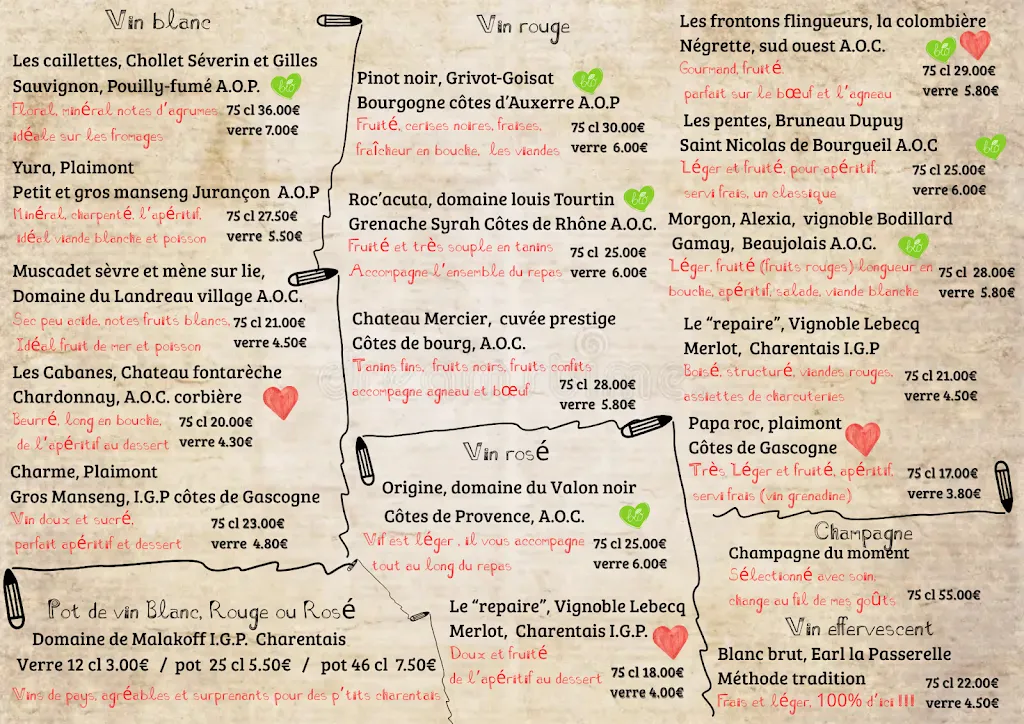 Vin blanc
Les caillettes, Chollet Séverin et Gilles
Sauvignon, Pouilly-fumé A.O.P.
bio
Floral, minéral notes d'agrumes
75 cl 36.00€
idéale sur les fromages
verre 7.00€
Yura, Plaimont
Petit et gros manseng Jurançon A.O.P
Minéral, charpenté, l'apéritif,
75 cl 27.50€
idéal viande blanche et poisson
verre 5.50€
Muscadet sèvre et mène sur lie,
Domaine du Landreau village A.O.C.
Sec peu acide, notes fruits blancs,
75 cl 21.00€
Idéal fruit de mer et poisson
verre 4.50€
Les Cabanes, Chateau fontarèche
Chardonnay, A.O.C. corbière
Beurré, long en bouche,
75 cl 20.00€
de l'apéritif au dessert
verre 4.30€
Charme, Plaimont
Gros Manseng, I.G.P côtes de Gascogne
Vin doux et sucré,
75 cl 23.00€
parfait apéritif et dessert
verre 4.80€
Pot de vin Blanc, Rouge ou Rosé
Domaine de Malakoff I.G.P. Charentais
Verre 12 cl 3.00€ / pot 25 cl 5.50€ / pot 46 cl 7.50€
Vins de pays, agréables et surprenants pour des p'tits charentais
Vin rouge
Pinot noir, Grivot-Goisat
bio
Bourgogne côtes d'Auxerre A.O.P
Fruité, cerises noires, fraises,
75 cl 30.00€
fraîcheur en bouche, les viandes
verre 6.00€
Roc'acuta, domaine louis Tourtin
bio
Grenache Syrah Côtes de Rhône A.O.C.
Fruité et très souple en tanins
75 cl 25.00€
Accompagne l'ensemble du repas
verre 6.00€
Chateau Mercier, cuvée prestige
Côtes de bourg, A.O.C.
Tanins fins, fruits noirs, fruits confits
accompagne agneau et bœuf
75 cl 28.00€
verre 5.80€
Vin rosé
Origine, domaine du Valon noir
Côtes de Provence, A.O.C.
bio
Vif est léger , il vous accompagne
75 cl 25.00€
tout au long du repas
verre 6.00€
Le "repaire", Vignoble Lebecq
Merlot, Charentais I.G.P.
Doux et fruité
de l'apéritif au dessert
75 cl 18.00€
verre 4.00€
Les frontons flingueurs, la colombière
Négrette, sud ouest A.O.C.
bio
Gourmand, fruité,
75 cl 29.00€
parfait sur le bœuf et l'agneau
verre 5.80€
Les pentes, Bruneau Dupuy
Saint Nicolas de Bourgueil A.O.C
bio
Léger et fruité, pour apéritif,
75 cl 25.00€
servi frais, un classique
verre 6.00€
Morgon, Alexia, vignoble Bodillard
Gamay, Beaujolais A.O.C.
bio
Léger, fruité (fruits rouges) longueur en
75 cl 28.00€
bouche, apéritif, salade, viande blanche
verre 5.80€
Le "repaire", Vignoble Lebecq
Merlot, Charentais I.G.P
Boisé, structuré, viandes rouges,
75 cl 21.00€
assiettes de charcuteries
verre 4.50€
Papa roc, plaimont
Côtes de Gascogne
Très Léger et fruité, apéritif,
75 cl 17.00€
servi frais (vin grenadine)
verre 3.80€
Champagne
Champagne du moment
Sélectionné avec soin,
change au fil de mes goûts
75 cl 55.00€
Vin effervescent
Blanc brut, Earl la Passerelle
Méthode tradition
75 cl 22.00€
Frais et léger, 100% d'ici !!!
verre 4.50€